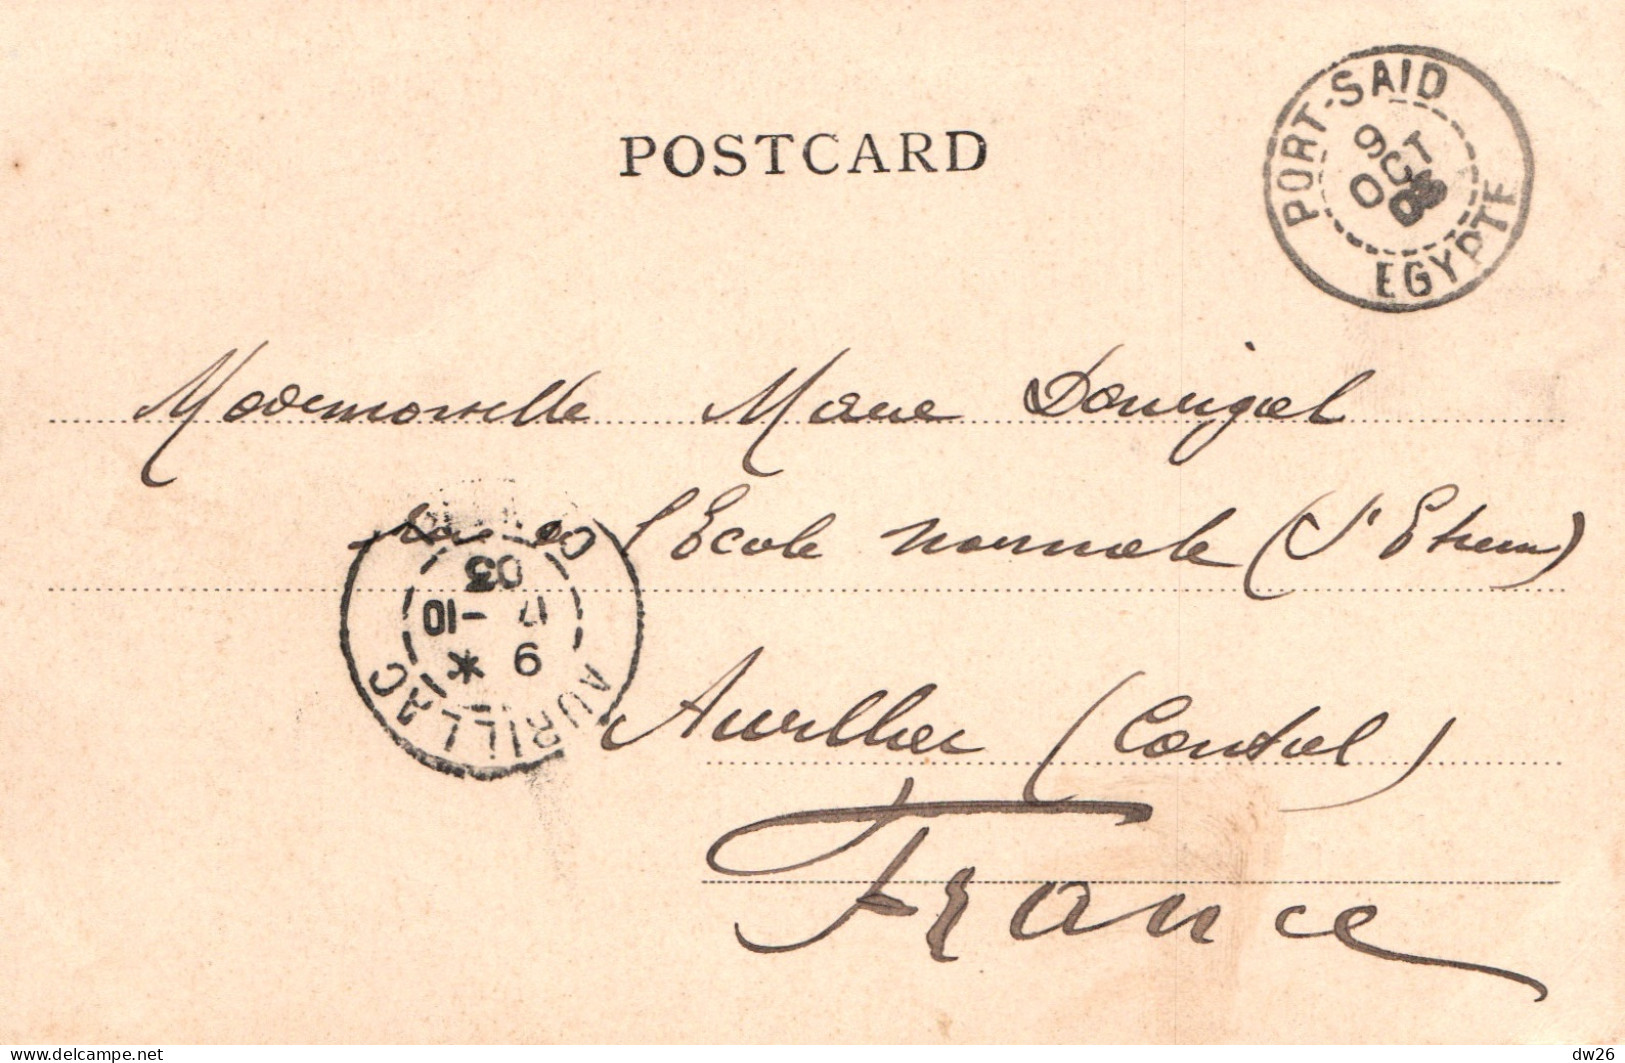 POSTCARD
PORT-SAID
9 OCT
03
EGYPTE
Mademoiselle Marie Dourigal
l'Ecole normale (St Etienne)
Aurillac (Cantal)
France
AURILLAC
9 *
17 -10
03
delcampe.net
dw26